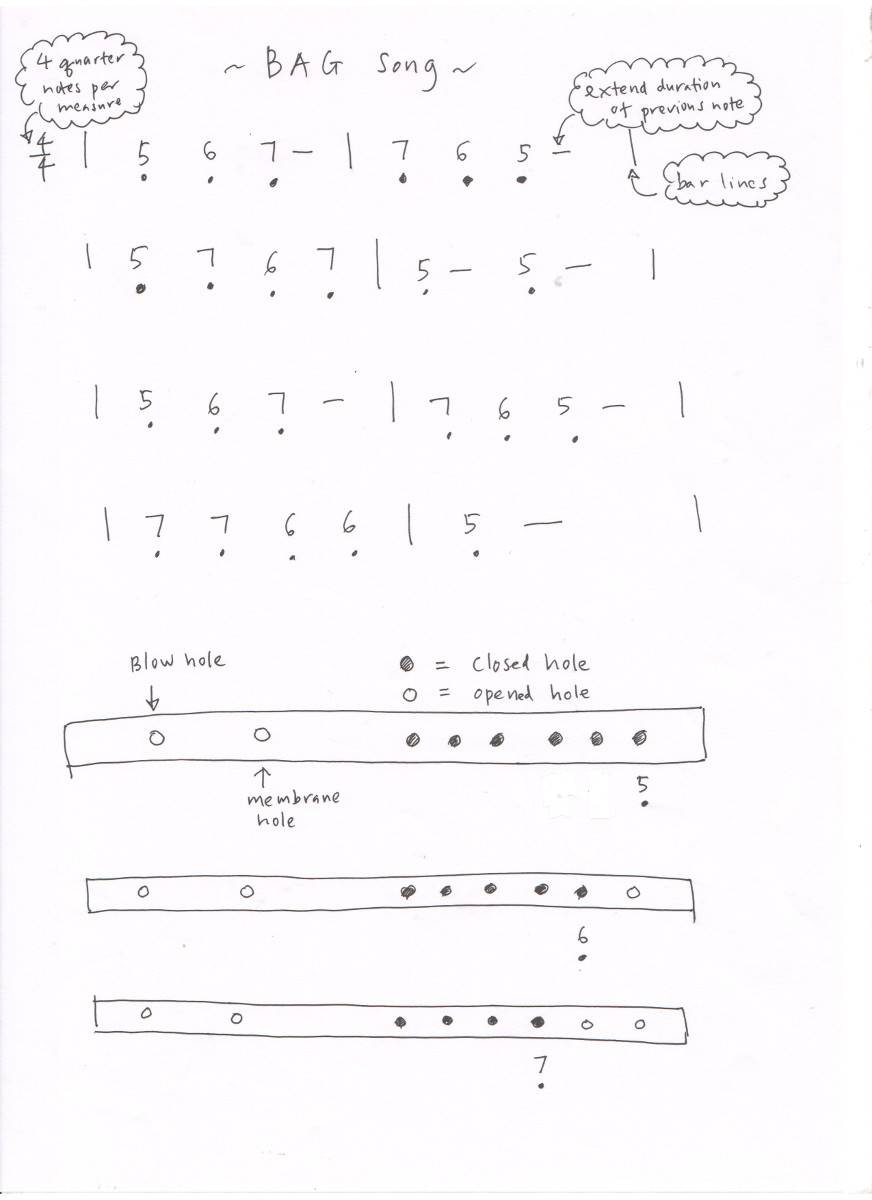 4 quarter
notes per
measure
~ BAG Song ~
extend duration
of previous note
4/4 | 5̣ 6̣ 7̣ – | 7̣ 6̣ 5̣ – |
bar lines
| 5̣ 7̣ 6̣ 7̣ | 5̣ – 5̣ – |
| 5̣ 6̣ 7̣ – | 7̣ 6̣ 5̣ – |
| 7̣ 7̣ 6̣ 6̣ | 5̣ – |
Blow hole
● = closed hole
○ = opened hole
membrane
hole
5̣
6̣
7̣